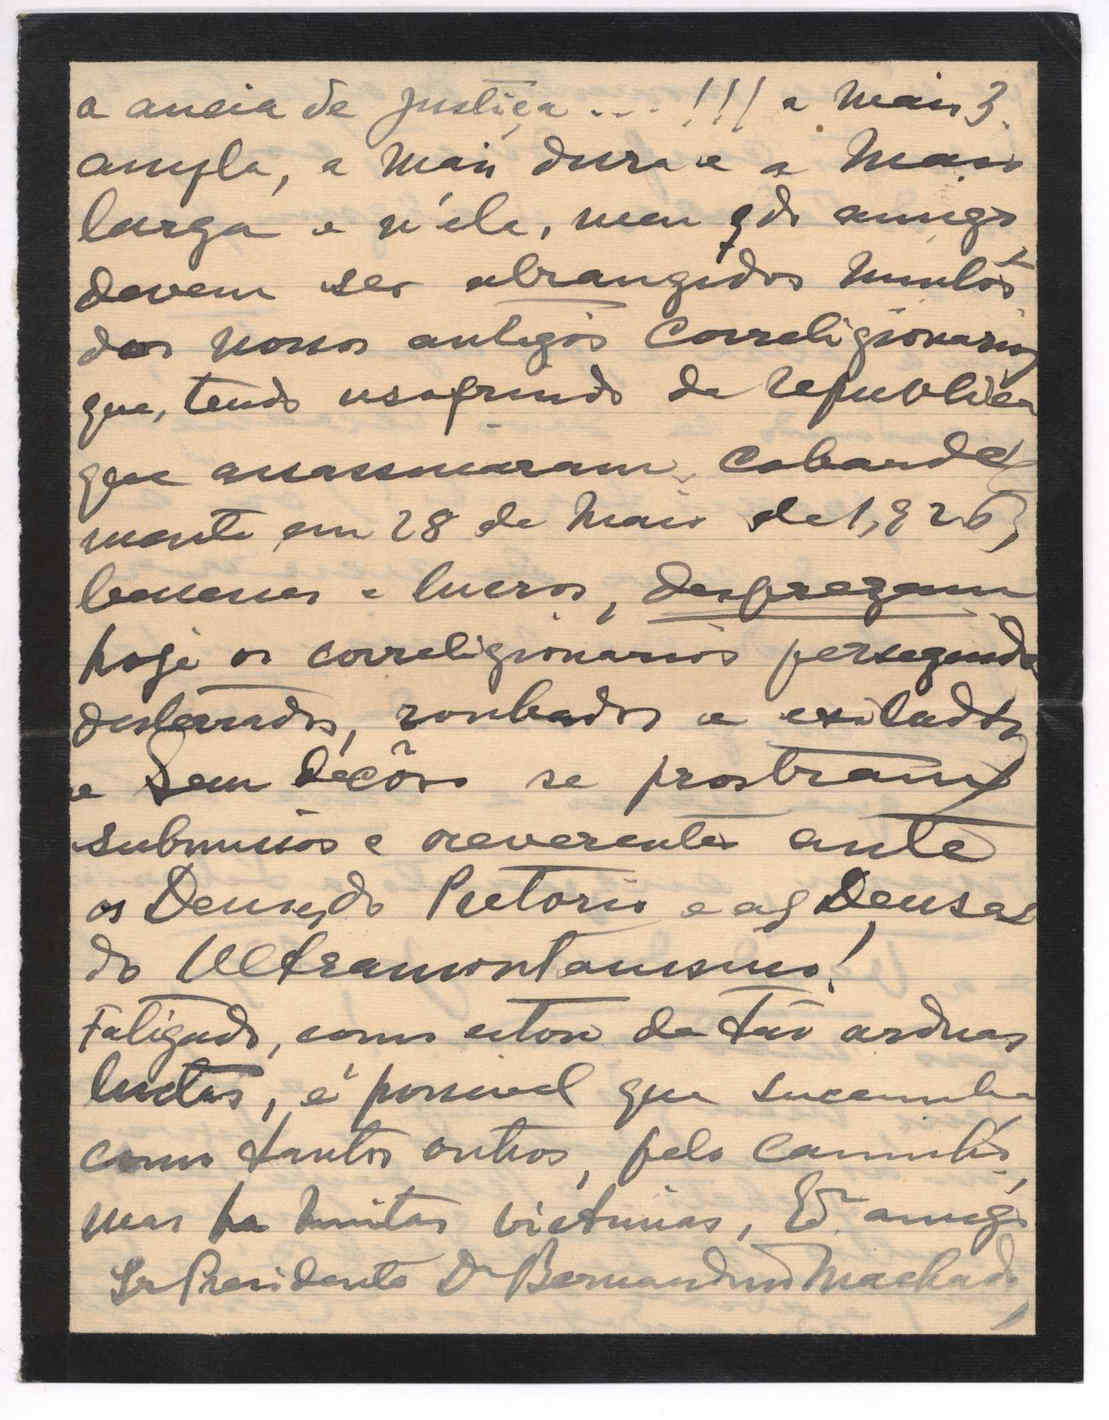 a aneia de justiça ... !!! a mais 3.
ampla, a mais dura e a mais
larga e n'éla, meu qdo amigo
devem ser abrangidos muitos
dos nossos antigos correligionarios
que, tendo usofruido da republica
que assassinaram, cobarde
mente em 28 de Maio de 1,926,
benesses e lucros, desprezam
hoje os correligionarios perseguidos
desterrados, roubados e exilados
e sem decôro se prostram
submissos e reverentes ante
os Deuses do Pretorio e as Deusas
do Ultramontanismo!
Fatigado, como estou de tão arduas
luctas, é possivel que sucumba
como tantos outros, pelo caminho,
mas ha muitas victimas, Exº amigo
Sr Presidente Dr Bernardino Machado,